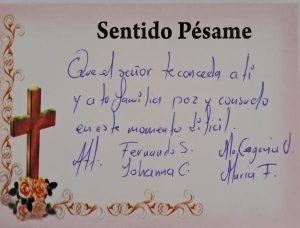 Sentido Pésame
Que el señor te conceda a ti
y a tu familia paz y consuelo
en este momento difícil.
Att. Fernando S.
Johanna C. María F.